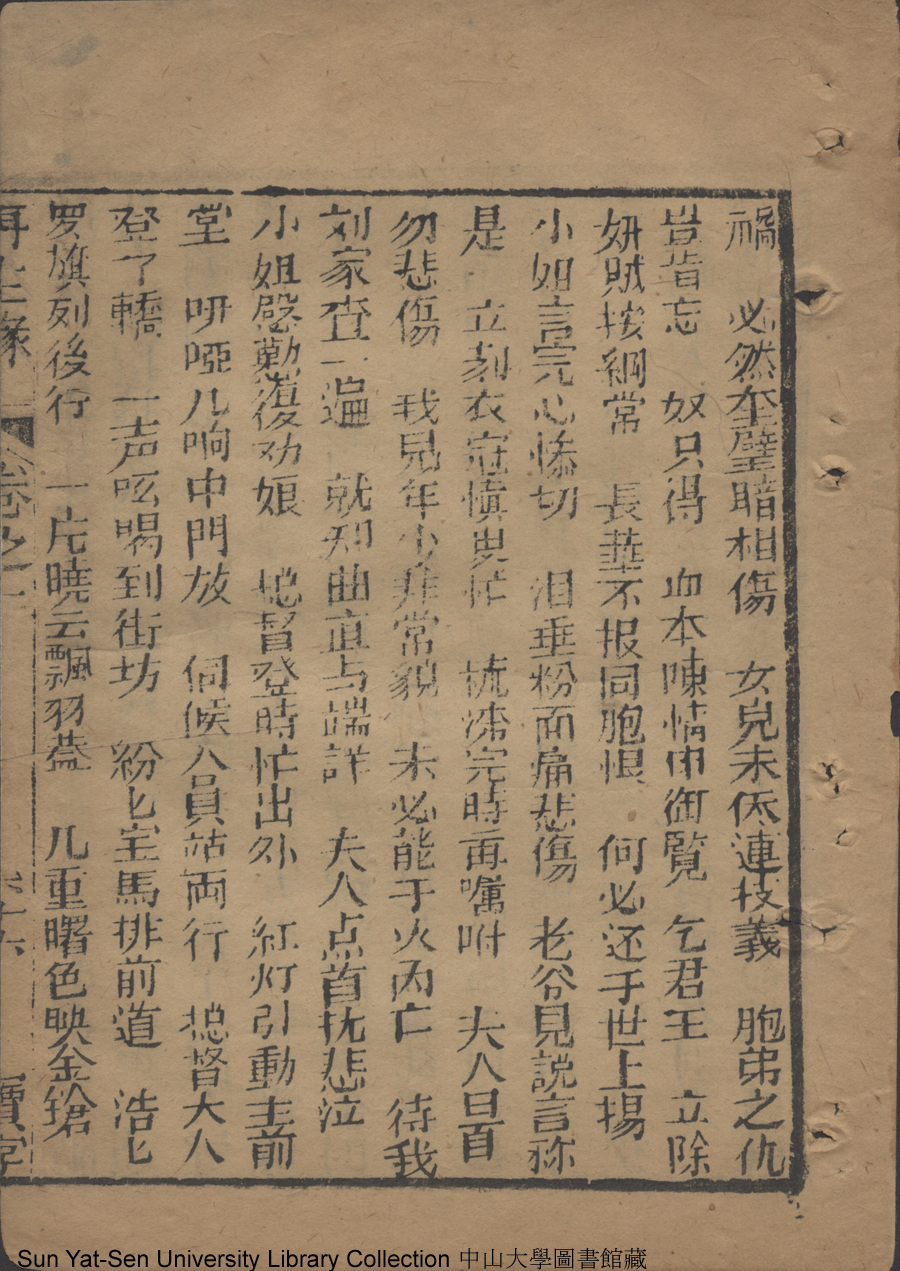 禍　必然奎璧暗相傷　女兒未佅連技義　胞弟之仇
豈肯忘　奴只得　血本陳情申御覽　乞君王　立除
奸賊按綱常　長華不报同胞恨　何必还于世上揚
小姐言完心惨切　泪垂粉面痛悲傷　老谷見説言称
是　立刻衣冠慎夷忙　梳洗完時再嘱咐　夫人且自
勿悲傷　我兒年少非常貌　未必能于火內亡　待我
刘家查一遍　就知曲直与端詳　夫人点首扰悲泣
小姐慇勤復劝娘　揔督登時忙出外　紅灯引動主前
堂　呀啞几响中門放　伺候人員站両行　揔督大人
登了轎　一声吆喝到街坊　紛匕宝馬排前道　浩匕
罗旗列後行　一片曉云飄羽蓋　几重曙色映金鎗
再生緣　卷之二　六十六　寶寧
Sun Yat-Sen University Library Collection 中山大學圖書館藏